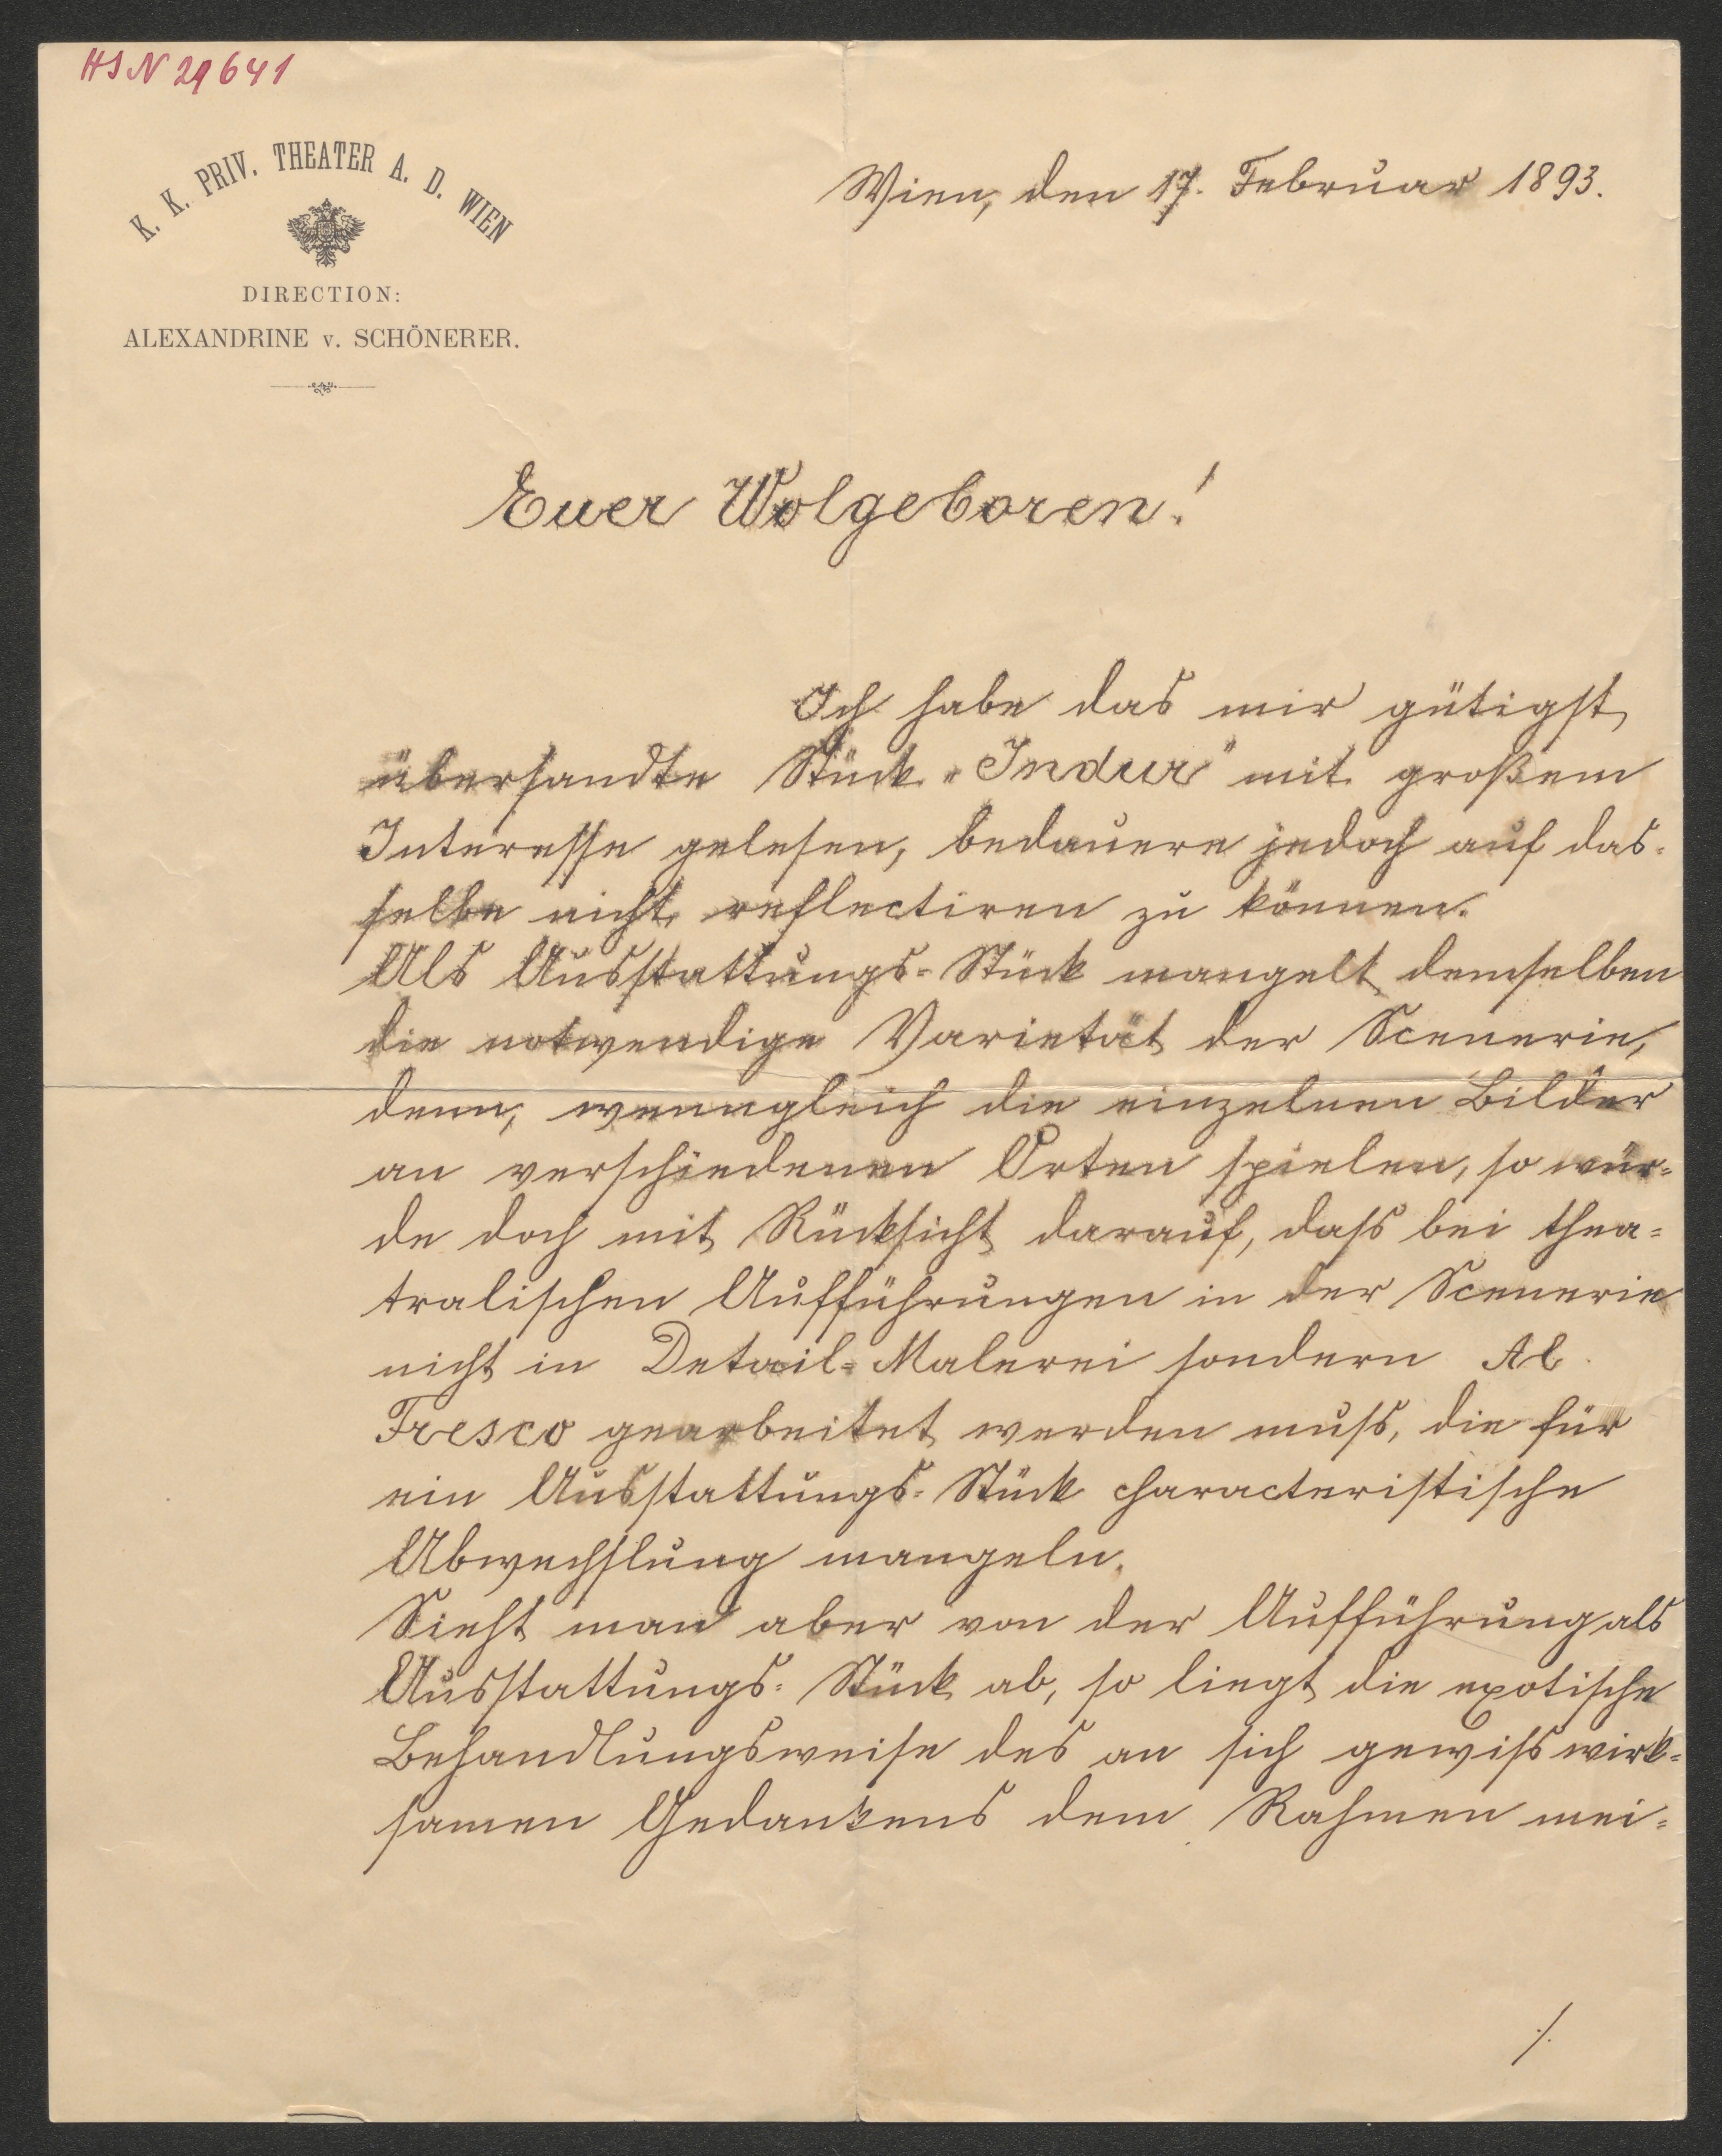 HIN 29641
K. K. PRIV. THEATER A. D. WIEN
DIRECTION:
ALEXANDRINE v. SCHÖNERER.
Wien, den 17. Februar 1893.
Euer Wolgeboren!
Ich habe das mir gütigst
übersandte Stück „Indur" mit großem
Interesse gelesen, bedauere jedoch auf das-
selbe nicht reflectiren zu können.
Als Ausstattungs-Stück mangelt demselben
die notwendige Varietät der Scenerie,
denn, wenngleich die einzelnen Bilder
an verschiedenen Orten spielen, so wür-
de doch mit Rücksicht darauf, dass bei thea-
tralischen Aufführungen in der Scenerie
nicht in Detail-Malerei sondern Al
Fresco gearbeitet werden muss, die für
ein Ausstattungs-Stück characteristische
Abwechslung mangeln.
Sieht man aber von der Aufführung als
Ausstattungs-Stück ab, so liegt die exotische
Behandlungsweise des an sich gewiss wirk-
samen Gedankens dem Rahmen mei-
./.